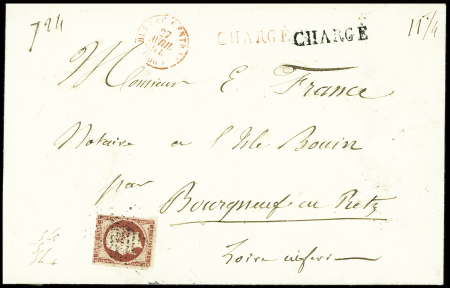 724
27
CHARGÉ CHARGÉ
11 1/4
Monsieur E. France
Notaire a l'Isle Bouin
par
Bourgneuf en Retz
Loire inferi